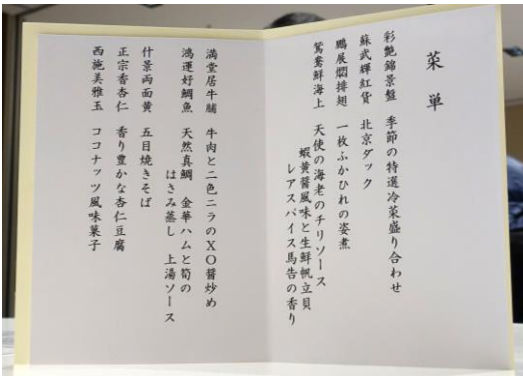 菜単
彩艶錦景盤 季節の特選冷菜盛り合わせ
蘇武輝紅貨 北京ダック
鵬展燜排翅 一枚ふかひれの姿煮
鴛鴦鮮海上 天使の海老のチリソース
蝦黄醤風味と生鮮帆立貝
レアスパイス馬告の香り
満堂居牛脯 牛肉と二色ニラのXO醤炒め
鴻運好鯛魚 天然真鯛 金華ハムと筍の
はさみ蒸し 上湯ソース
什景両面黄 五目焼きそば
正宗香杏仁 香り豊かな杏仁豆腐
西施美雅玉 ココナッツ風味菓子